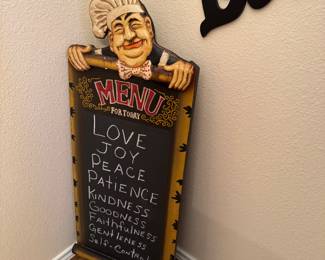 MENU
FOR TODAY
LOVE
JOY
PEACE
PATIENCE
KINDNESS
GOODNESS
FAITHFULNESS
GENTLENESS
Self-Control